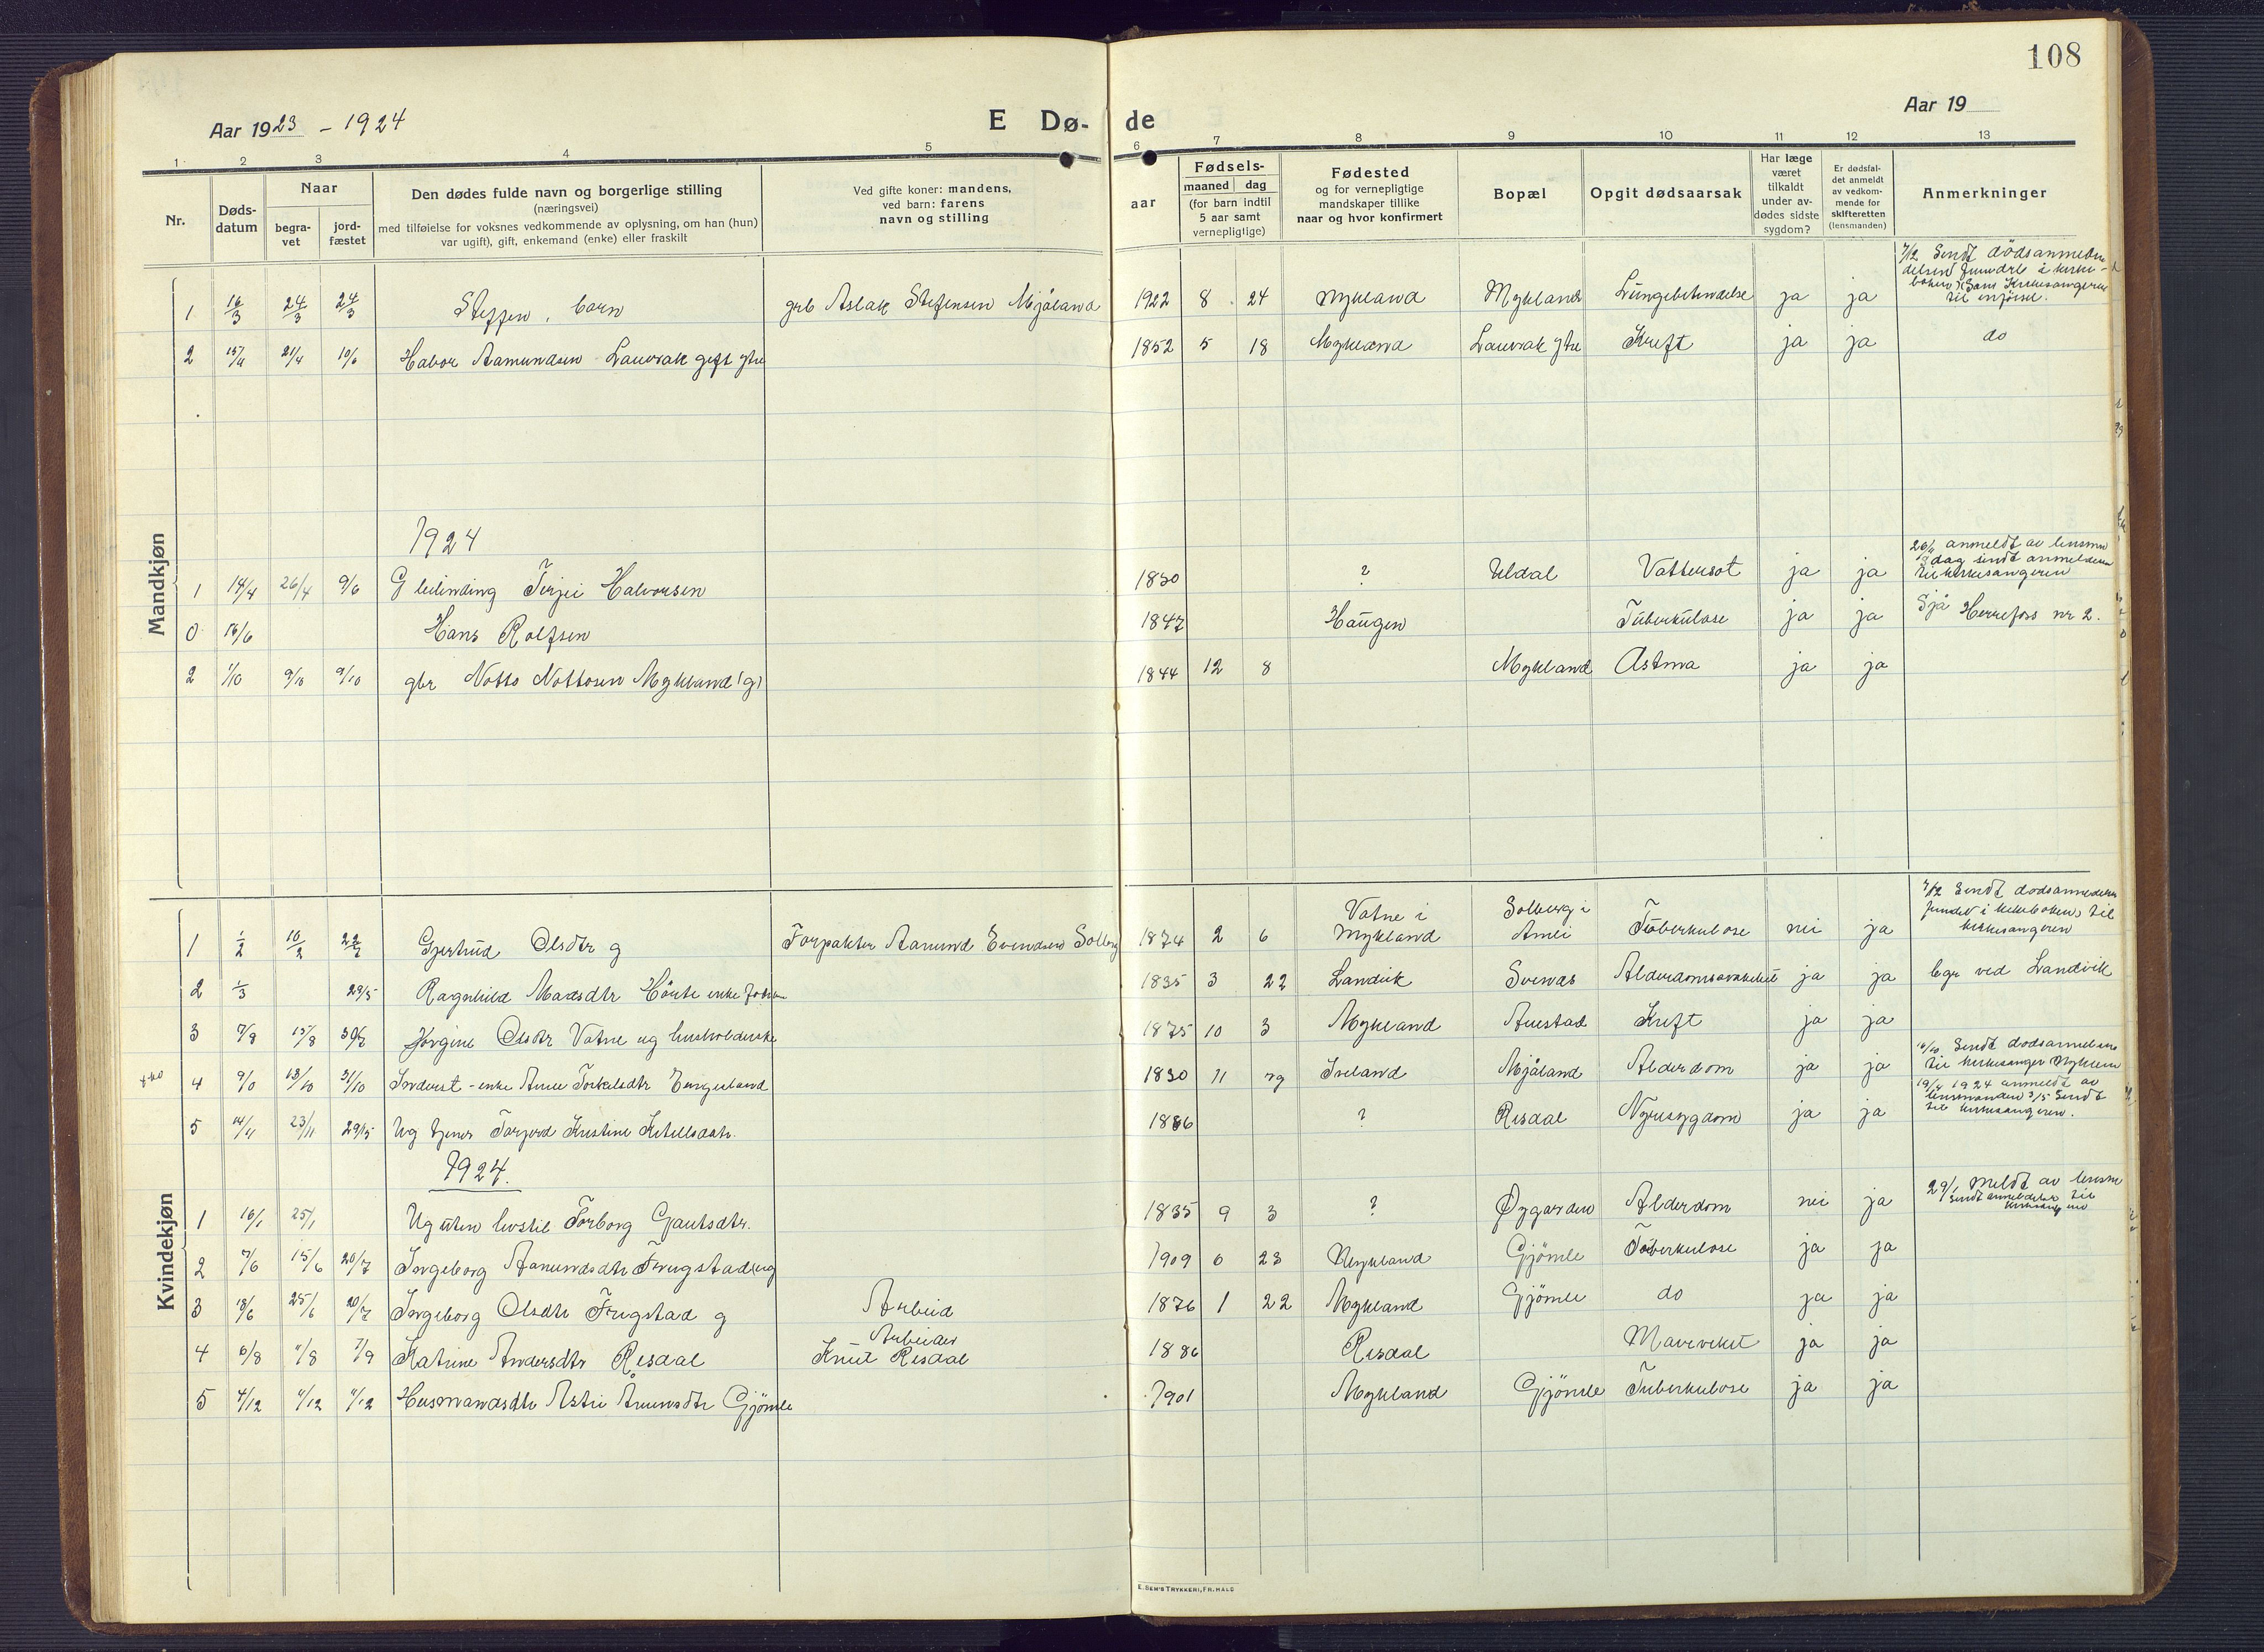 108
Aar 1923 - 1924
E Dø- de
Aar 19
1 2 3 4 5 6 7 8 9 10 11 12 13
Nr.
Døds-
datum
Naar
begra-
vet
jord-
fæstet
Den dødes fulde navn og borgerlige stilling
(næringsvei)
med tilføielse for voksnes vedkommende av oplysning, om han (hun)
var ugift), gift, enkemand (enke) eller fraskilt
Ved gifte koner: mandens,
ved barn: farens
navn og stilling
aar
Fødsels-
maaned dag
(for barn indtil
5 aar samt
vernepligtige)
Fødested
og for vernepligtige
mandskaper tillike
naar og hvor konfirmert
Bopæl
Opgit dødsaarsak
Har læge
været
tilkaldt
under av-
dødes sidste
sygdom?
Er dødsfal-
det anmeldt
av vedkom-
mende for
skifteretten
(lensmanden)
Anmerkninger
Mandkjøn
7/12 Sendt dödsanmeldel
1 16/3 24/3 24/3 Steffen, barn grb Aslak Stefensen Mjåland 1922 8 24 Mykland Mykland Lungebetendelse ja ja
2 15/4 21/4 10/6 Halvor Aamundsen Lauvrak gift gbr 1852 5 18 Mykland Lauvrak gbr Kreft ja ja do
1924
1 18/4 26/4 9/6 Terjei Halvorsen 1830 ? Uldal Vattersot ja ja
26/4 anmeldt av lensmn
dag sendt anmeldelsen
til kirkesangeren
0 16/6 Hans Rolfsen 1847 Haugen Tuberkulose ja ja Sjå Herrefoss nr 2.
2 1/10 9/10 9/10 gbr Notto Nottosen Mykland (g) 1844 12 8 Mykland Astma ja ja
7/12 Sendt dodsanmeldelsen
fundet i kirkeboken til
kirkesangeren
1 1/2 10/2 22/7 Gjertrud Olsdtr g Forpakter Aanund Evendsen Solberg 1874 2 6 Vatne i Mykland Solberg i Amli Tuberkulose nei ja
2 1/3 29/5 Ragnhild Madsdtr enke 1835 3 22 Landvik Svenas ja ja begr ved Landvik
3 7/8 15/8 30/7 Jørgine Olsdtr Vatne ug husholderske 1875 10 3 Mykland Aurstad Kreft ja ja
4 9/10 13/10 31/10 Inderst-enke Anne Torkelsdtr Engesland 1830 11 29 Iveland Mjåland Alderdom ja ja
16/10 Sendt dodsanmeldelsen
til kirkesanger Mykland
5 14/11 23/11 29/5 Ug tjener Torjerd Kristine Ketellsdatr. 1886 ? Risdal Nyresygdom ja ja
19/4 1924 anmeldt av
lensmanden 3/5 Sendt
til kirkesangeren.
1924.
Kvindekjøn
1 16/1 25/1 Ug uten livstil Torborg Gautsdtr. 1835 9 3 ? Øygarden Alderdom nei ja
29/1 meldt av lensm
Sendt anmeldelse til
kirkesangeren
2 7/6 15/6 20/7 Ingeborg Aanundsdtr Frugstad (ug 1909 6 23 Mykland Gjömle Tuberkulose ja ja
3 18/6 25/6 20/7 Ingeborg Olsdtr Frugstad g Arbeid 1876 1 22 Mykland Gjömle do ja ja
4 6/8 11/8 7/9 Katrine Andersdtr Risdal Arbeider Knut Risdal 1886 Risdal ja ja
5 4/12 11/12 11/12 Husmandsdtr Astri Aanundsdtr Gjömle 1901 Mykland Gjömle Tuberkulose ja ja
E. SEM'S TRYKKERI, FR. HALD